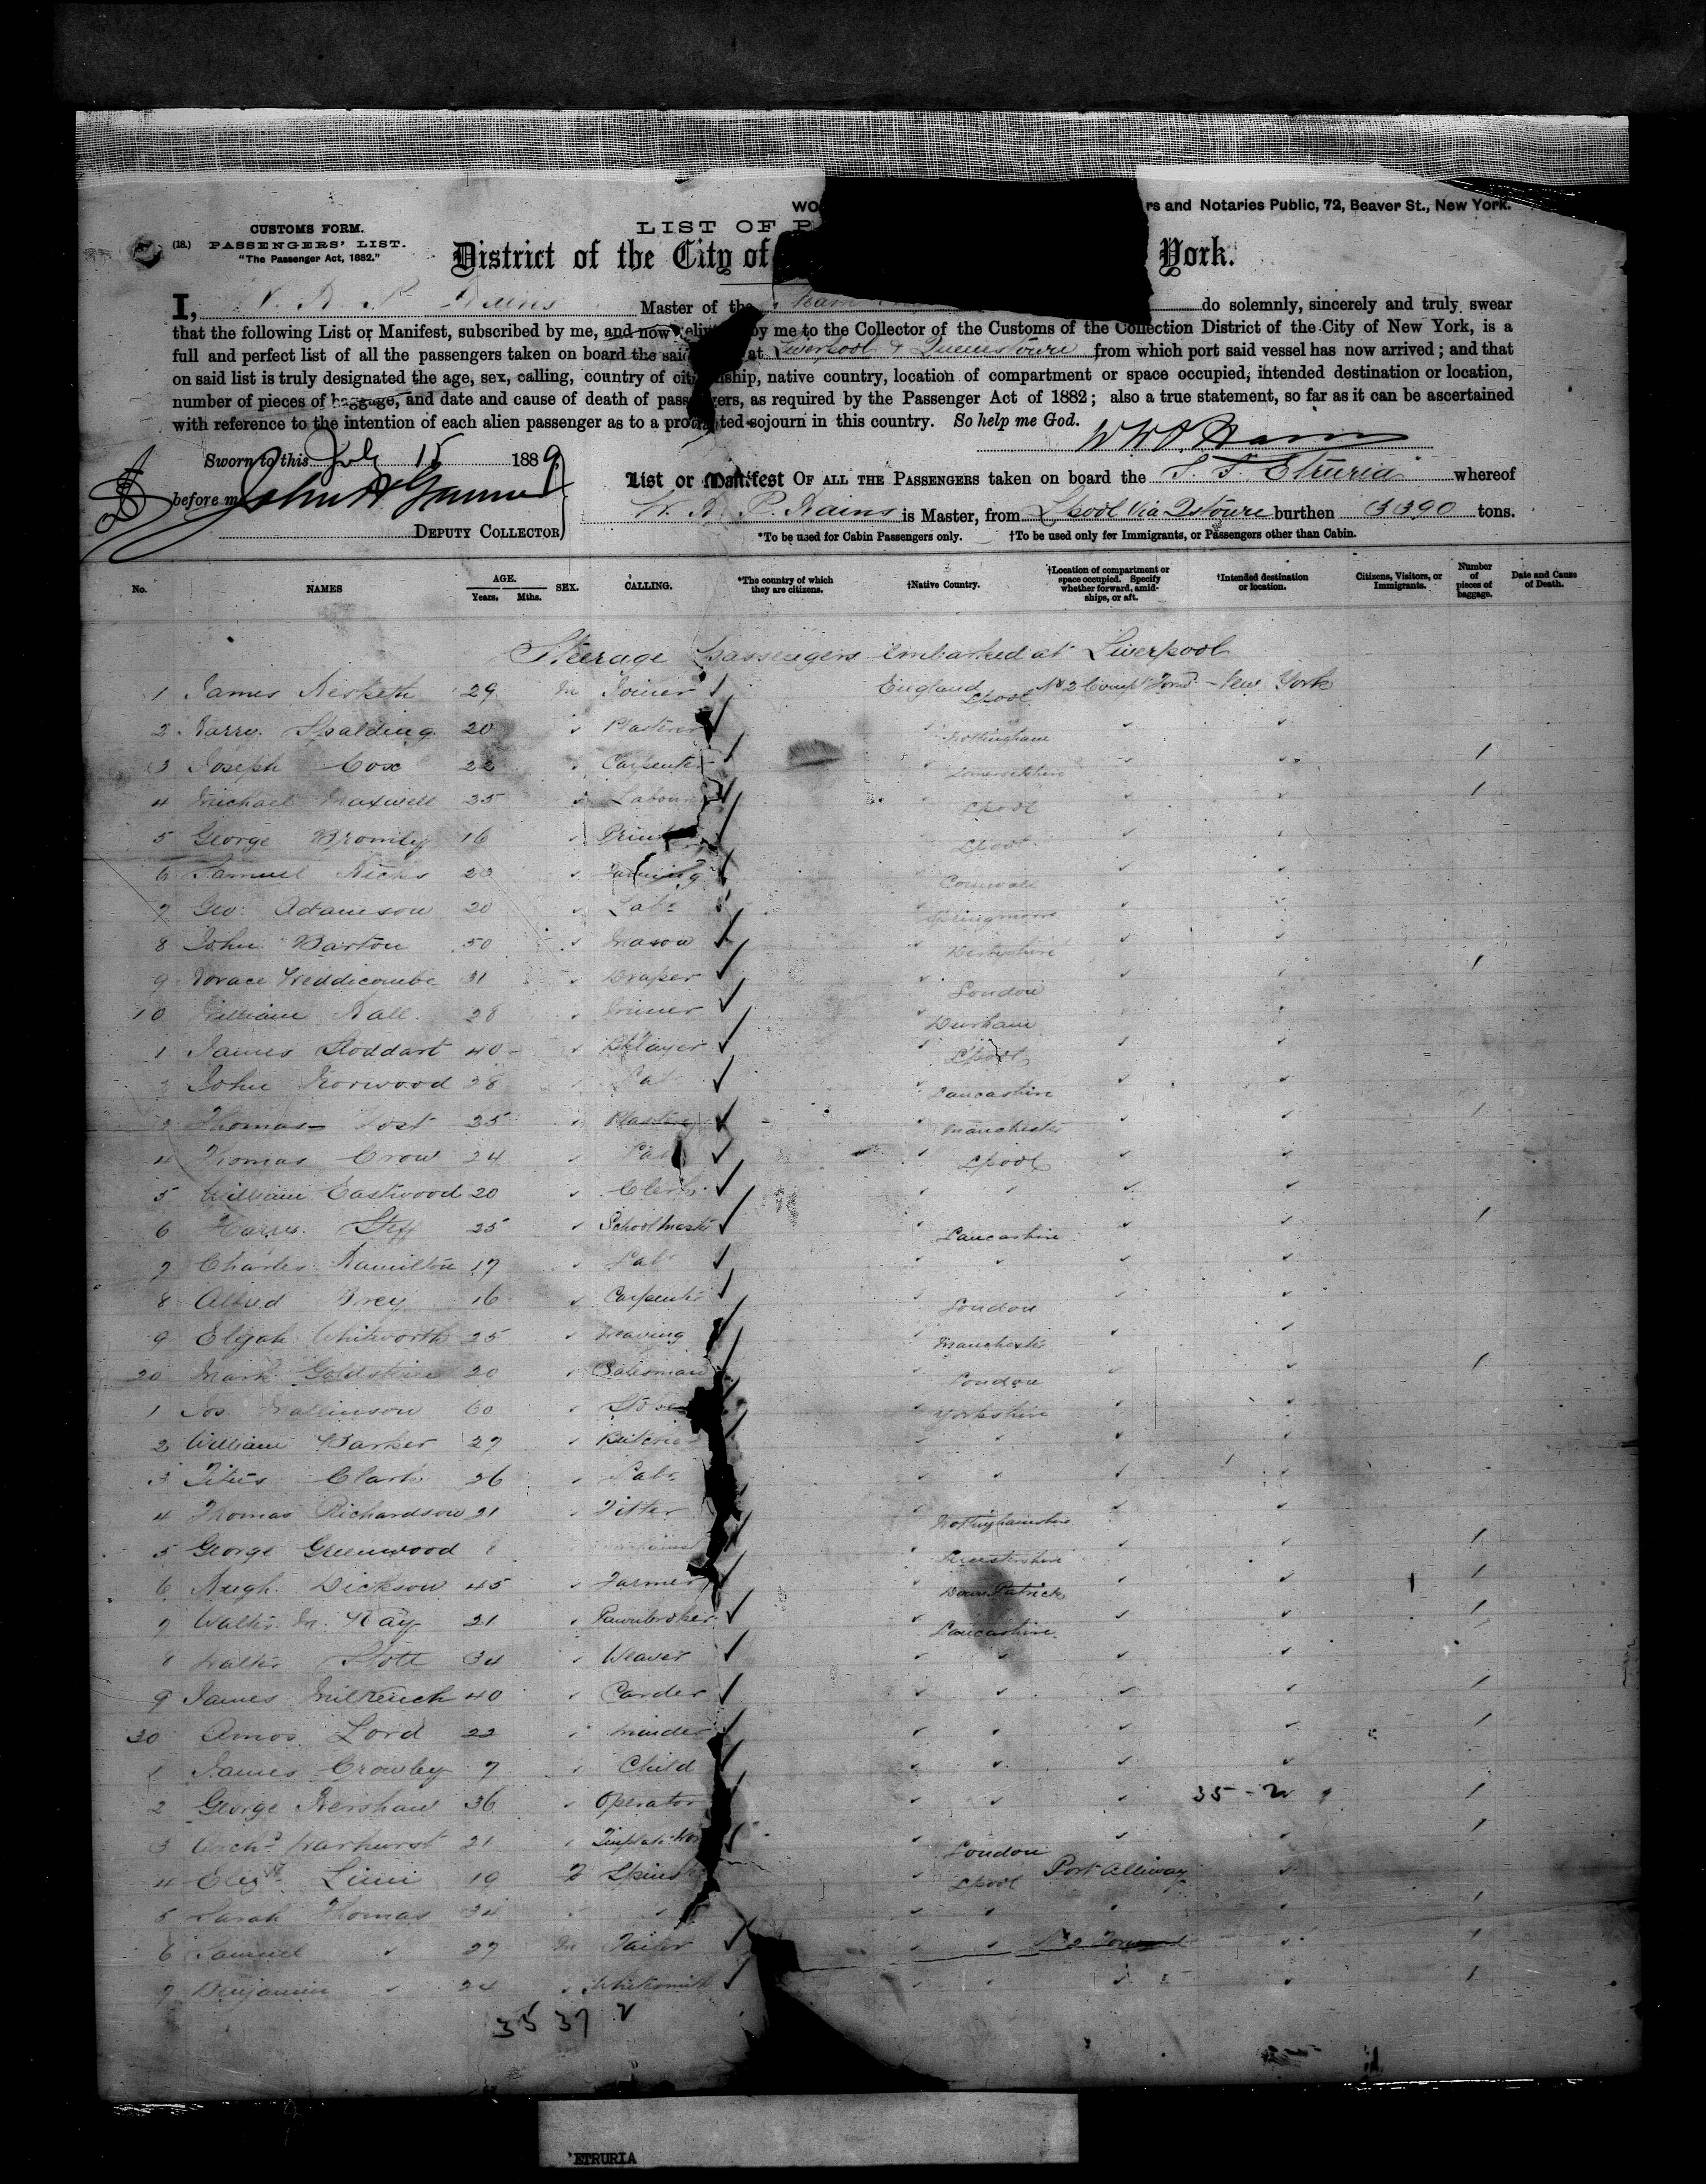 rs and Notaries Public, 72, Beaver St., New York.
CUSTOMS FORM.
LIST OF P
(18.) PASSENGERS' LIST.
"The Passenger Act, 1882."
District of the City of York.
I, Master of the do solemnly, sincerely and truly swear
that the following List or Manifest, subscribed by me, and now by me to the Collector of the Customs of the Collection District of the City of New York, is a
full and perfect list of all the passengers taken on board the said at Liverpool & Queenstown from which port said vessel has now arrived; and that
on said list is truly designated the age, sex, calling, country of citizenship, native country, location of compartment or space occupied, intended destination or location,
number of pieces of baggage, and date and cause of death of passengers, as required by the Passenger Act of 1882; also a true statement, so far as it can be ascertained
with reference to the intention of each alien passenger as to a protracted sojourn in this country. So help me God.
Sworn to this July 15 1889
before me
DEPUTY COLLECTOR
List or Manifest OF ALL THE PASSENGERS taken on board the S. S. Etruria whereof
W. H. P. Hains is Master, from Lpool Via Qstown burthen 3390 tons.
*To be used for Cabin Passengers only. †To be used only for Immigrants, or Passengers other than Cabin.
No. NAMES AGE. Years. Mths. SEX. CALLING. *The country of which they are citizens. †Native Country. †Location of compartment or space occupied. Specify whether forward, amidships, or aft. †Intended destination or location. Citizens, Visitors, or Immigrants. Number of pieces of baggage. Date and Cause of Death.
Steerage passengers embarked at Liverpool
1 James Hesketh 29 M Joiner England Lpool No 2 Compt Forwd - New York
2 Harry Spalding 20 Plasterer Nottingham
3 Joseph Cox 22 Carpenter Somersetshire 1
4 Michael Maxwell 35 Labourer Lpool 1
5 George Bromley 16 Lpool
6 Samuel Hicks 20 Cornwall
7 Geo: Adamson 20 Labr
8 John Barton 50 Mason Derbyshire
9 Horace Weddicombe 31 Draper London 1
10 William Hall 28 Miner Durham
1 James Stoddart 40 Lpool
2 John Norwood 28 Lab Lancashire
3 Thomas 25 Manchester 1
4 Thomas Crow 24 Lab Lpool
5 William Eastwood 20 Clerk
6 Harry 25 Schoolmastr Lancashire 1
7 Charles Hamilton 17 Lab
8 Alfred 16 Carpenter London
9 Elijah Whitworth 25 Weaving Manchester
20 Mark Goldstein 20 Salesman London 1
1 Jos Mallinson 60 Yorkshire
2 William Barker 27 Butcher
3 Titus Clark 26 Labr
4 Thomas Richardson 21 Fitter Nottinghamshire
5 George Greenwood Leicestershire 1
6 Hugh Dickson 45 Farmer Down Patrick 1
7 Walter M. Kay 21 Pawnbroker Lancashire 1
8 Walter Stott 34 Weaver
9 James 40 Carder 1
30 Amos Lord 22 Minder 1
1 James Crowley 7 Child
2 George Kershaw 36 Operator 35 - 2 1
3 Archd Warhurst 21 London 1
4 19 F Lpool
5 Sarah Thomas 34 1
6 Samuel 27 M Tailor 1
7 Benjamin 24 Whitesmith 1
35 37 2
'ETRURIA